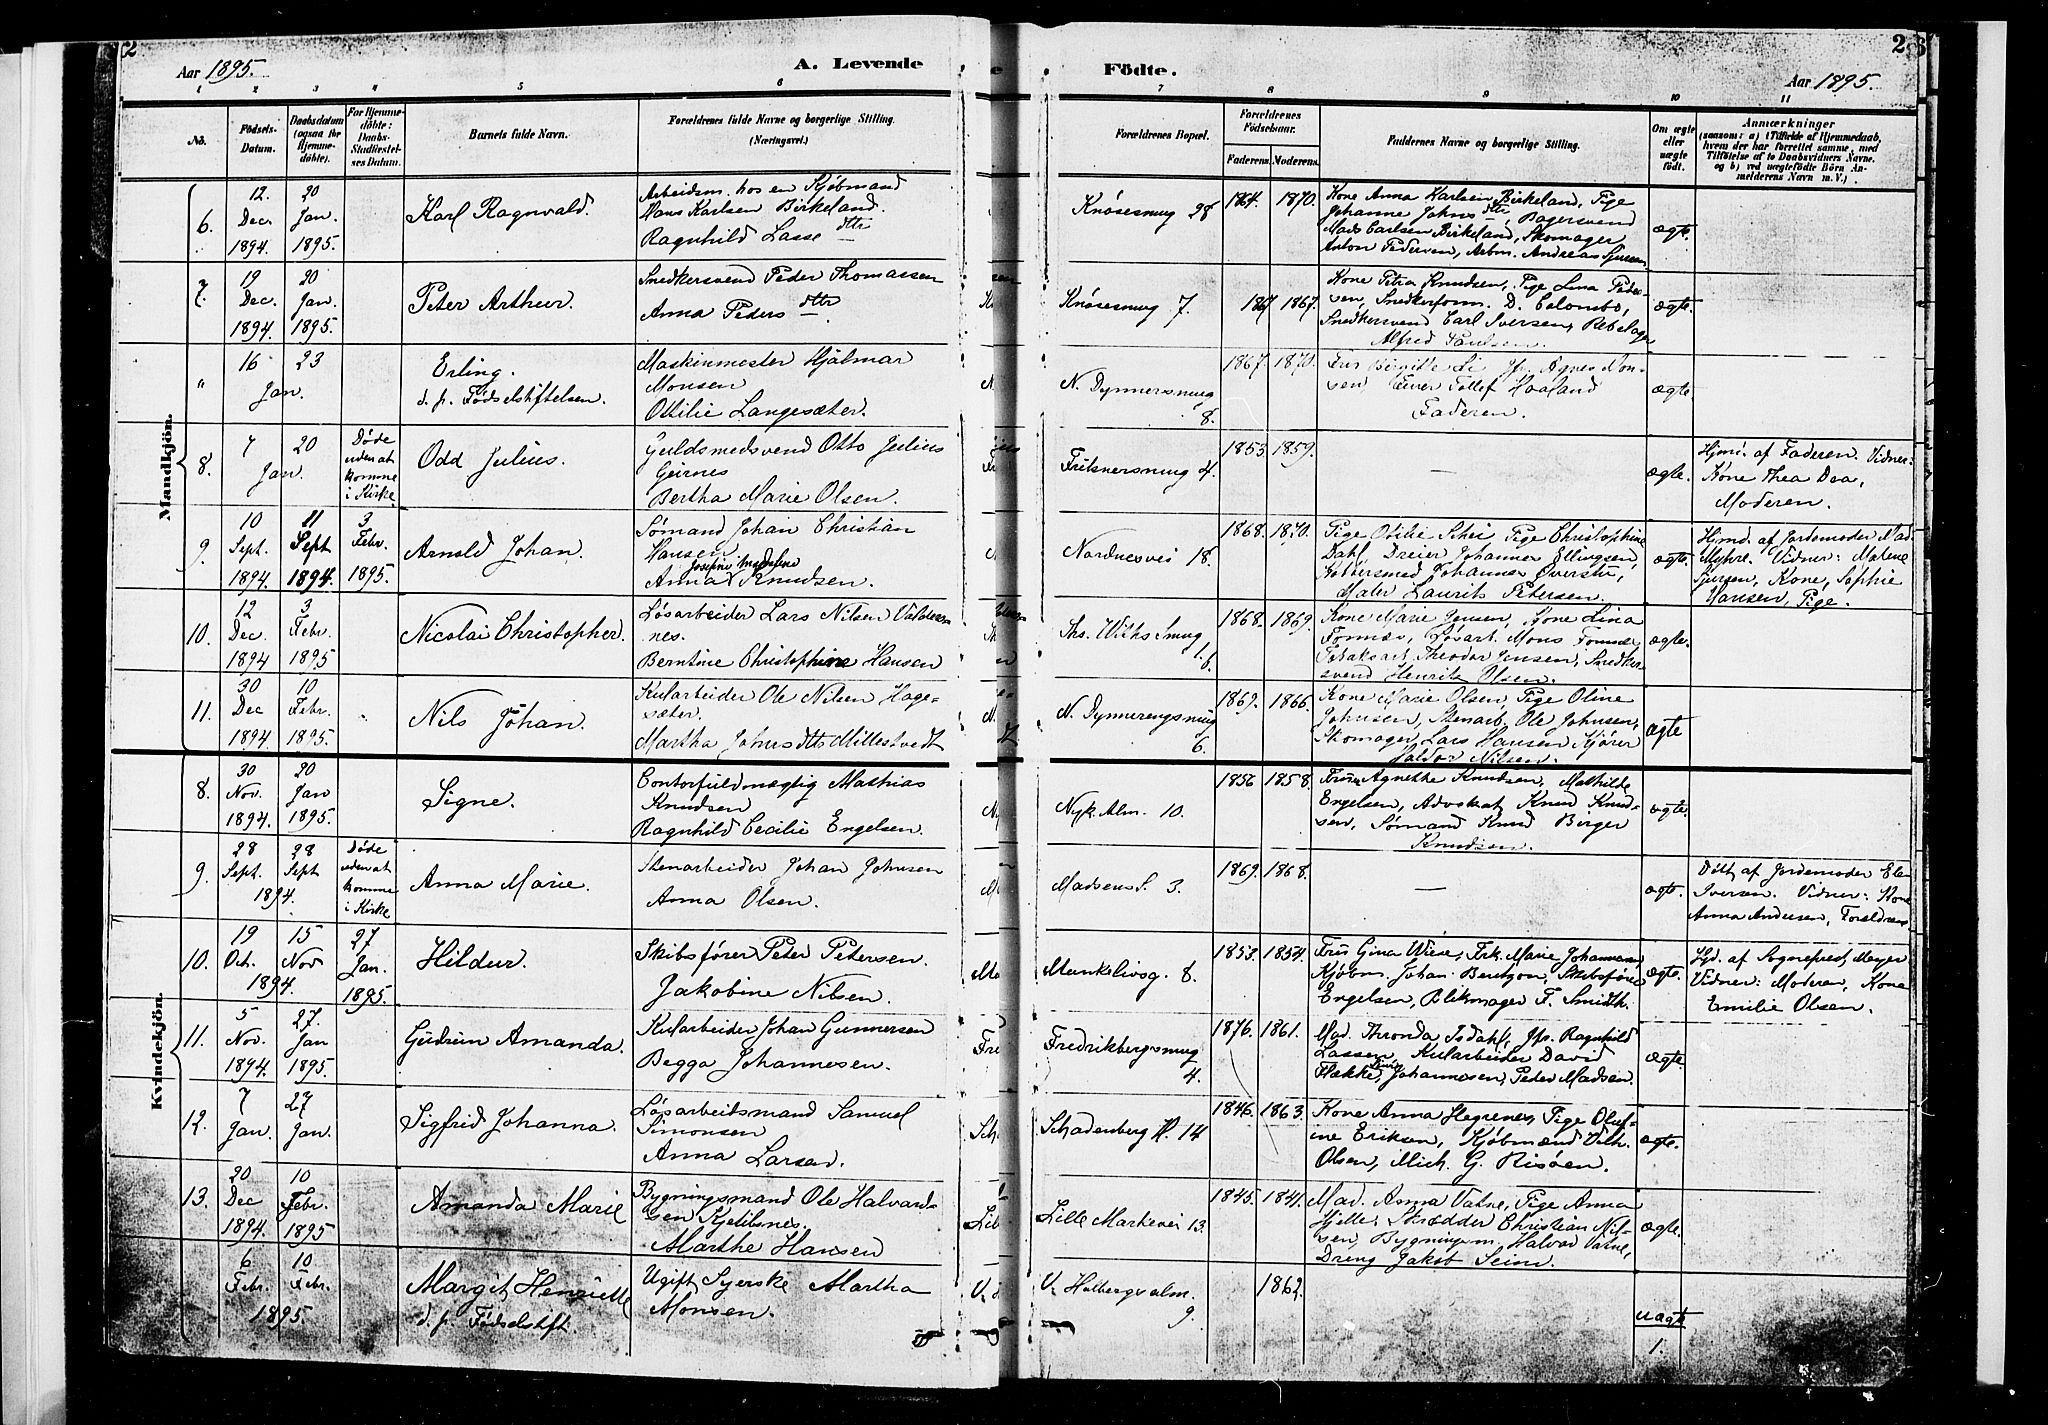 2
Aar 1895.
A. Levende
Födte.
Aar 1895.
2
1 2 3 4 5 6 7 8 9 10 11
No.
Födsels-Datum.
Daabsdatum (ogsaa for Hjemmedöbte).
For Hjemmedöbte: Daabs-Stadfæstelses Datum.
Barnets fulde Navn.
Forældrenes fulde Navne og borgerlige Stilling. (Næringsvei.)
Forældrenes Bopæl.
Forældrenes Födselsaar.
Faderens. Moderens.
Faddernes Navne og borgerlige Stilling.
Om ægte eller uægte födt.
Anmærkninger
(saasom: a) i Tilfælde af Hjemmedaab, hvem der har forrettet samme, med Tilföielse af to Daabsvidners Navne. og b) ved uægtefödte Börn Anmelderens Navn m. V.)
Mandkjön.
6.
12. Dec. 1894
20 Jan. 1895.
Karl Ragnvald.
Arbeidsm. hos en Kjöbmand
Hans Karlsen Birkeland.
Ragnhild Lasse dttr
Knösesmug 28
1864. 1870.
Kone Anna Karlsen Birkeland, Pige
Johanne Johns dttr, Bagersvend
Mads Carlsen Birkeland, Skomager
Anton Pedersen, Arbm. Andreas
ægte.
7.
19 Dec. 1894
20 Jan. 1895.
Peter Arthur.
Snedkersvend Peder Thomassen
Anna Peders dttr.
Knösesmug 7.
1867.
Kone Petra Knudsen, Pige Lina Peder-
sen, Snedkerform. D. Colombo,
Snedkersvend Carl Iversen, Rebslager
Alfred Paulsen.
ægte.
"
16 23 Jan.
Erling.
d. p. Födselstiftelsen.
Maskinmester Hjalmar
Monsen
Ottilie Langesæter.
N. Dynnersmug
8.
1867. 1870.
Birgitte Li Jfr. Agnes Mon-
sen Tollef Haaland
Faderen.
ægte.
8.
7 20 Jan.
Döde uden at komme i Kirke
Odd Julius.
Guldsmedsvend Otto Julius
Geirnes
Bertha Marie Olsen.
Fritznersmug 4.
1853 1859.
—
ægte.
Hjmd. af Faderen. Vidner:
Kone Thea Daa,
Moderen.
9.
10 Sept. 1894
11 Sept 1894.
3 Febr. 1895.
Arnold Johan.
Sömand Johan Christian
Hansen
Josefine Magdalene
Anna Knudsen.
Nordnesvei 18.
1868. 1870.
Pige Otilie Schei Pige Christophine
Dahl, Dreier Johannes Ellingsen,
Kobbersmed Johannes
Maler Laurits Petersen.
ægte.
Hjmd. af Jordemoder Mad.
Myhre. Vidner: Malene
Sjursen, Kone, Sophie
Hansen, Pige.
10.
12 Dec. 1894
3 Febr. 1895
Nicolai Christopher.
Lösarbeider Lars Nilsen
nes.
Berntine Christophine Hansen
Ths. Withs Smug
6.
1868. 1869.
Kone Marie Jensen, Kone Lina
Fornæs, Lösarb. Mons Fornæs,
Theodor Jensen, Snedker-
svend Henrik Olsen.
ægte.
11.
30 Dec 1894
10 Febr. 1895.
Nils Johan.
Kularbeider Ole Nilsen Hage-
sæter.
Martha Johnsdttr Millestvedt
6.
1869. 1866.
Kone Marie Olsen, Pige Oline
Johnsen, Stenarb. Ole Johnsen,
Skomager Lars Hansen, Kjører
Nilsen.
ægte
Kvindekjön.
8.
30 Nov. 1894.
20 Jan 1895.
Signe.
Contorfuldmægtig Mathias
Knudsen
Ragnhild Cecilie Engelsen.
Nyk. Alm. 10.
1856 1858.
Frue Agnethe Knudsen, Mathilde
Engelsen, Advokat Knud Knud-
sen, Sömand Knud Birger
Knudsen.
ægte.
9.
28 Sept. 28 Sept
1894.
Döde uden at komme i Kirke
Anna Marie.
Stenarbeider Johan Johnsen
Anna Olsen.
Madsens S. 3.
1869. 1868.
—
ægte.
Döbt af Jordemoder Elen
Iversen. Vidner: Kone
Anna Andersen, Forældrene
10.
19 Oct. 15 Nov
1894.
27 Jan. 1895.
Hildur.
Skibsförer Peter Petersen.
Jakobine Nilsen.
Munkelivsg. 8.
1853. 1854.
Frue Gina Wiese, Frk. Marie Johannsen
Kjöbm. Johan Berntzon, Skibsförer
Engelsen, Blikmager F. Smidth.
ægte.
Hjd. af Sognepræst Meyer
Vidner: Moderen, Kone
Emilie Olsen.
11.
5 Nov. 1894.
27. Jan 1895.
Gudrun Amanda.
Kularbeider Johan Gunnersen
Begga Johannesen.
Fredrikbergsmug
4.
1876. 1861.
Mad. Thronda Isdahl, Jfr. Ragnhild
Lassen, Kularbeider David
Flække, Johannesen, Peder Madsen.
ægte.
12.
7 Jan.
27 Jan.
Sigfrid Johanna.
Lösarbeidsmand Samuel
Simonsen
Anna Larsen.
Skadenberg 14
1846. 1863.
Kone Anna Hegrenes, Pige Oluf-
ine Eriksen, Kjöbmænd Vilh.
Olsen, Mich. G. Risöen.
ægte.
13.
20 Dec 1894.
10 Febr. 1895
Amanda Marie
Bygningsmand Ole Halvard-
sen Kjetilsnes.
Marthe Hansen
Lille Markevei 13.
1845. 1841.
Mad. Anna Vatne, Pige Anna
Hjelle, Skrædder Christian Nil-
sen, Bygningsm. Halvar Vatne,
Dreng Jakob Seim.
ægte.
6 Febr. 10 Febr.
1895
Margit Henriette
d. p. Födselstift.
Ugift Syerske Martha
Monsen.
V. Holbergsalm.
9.
1862.
uægte
1.